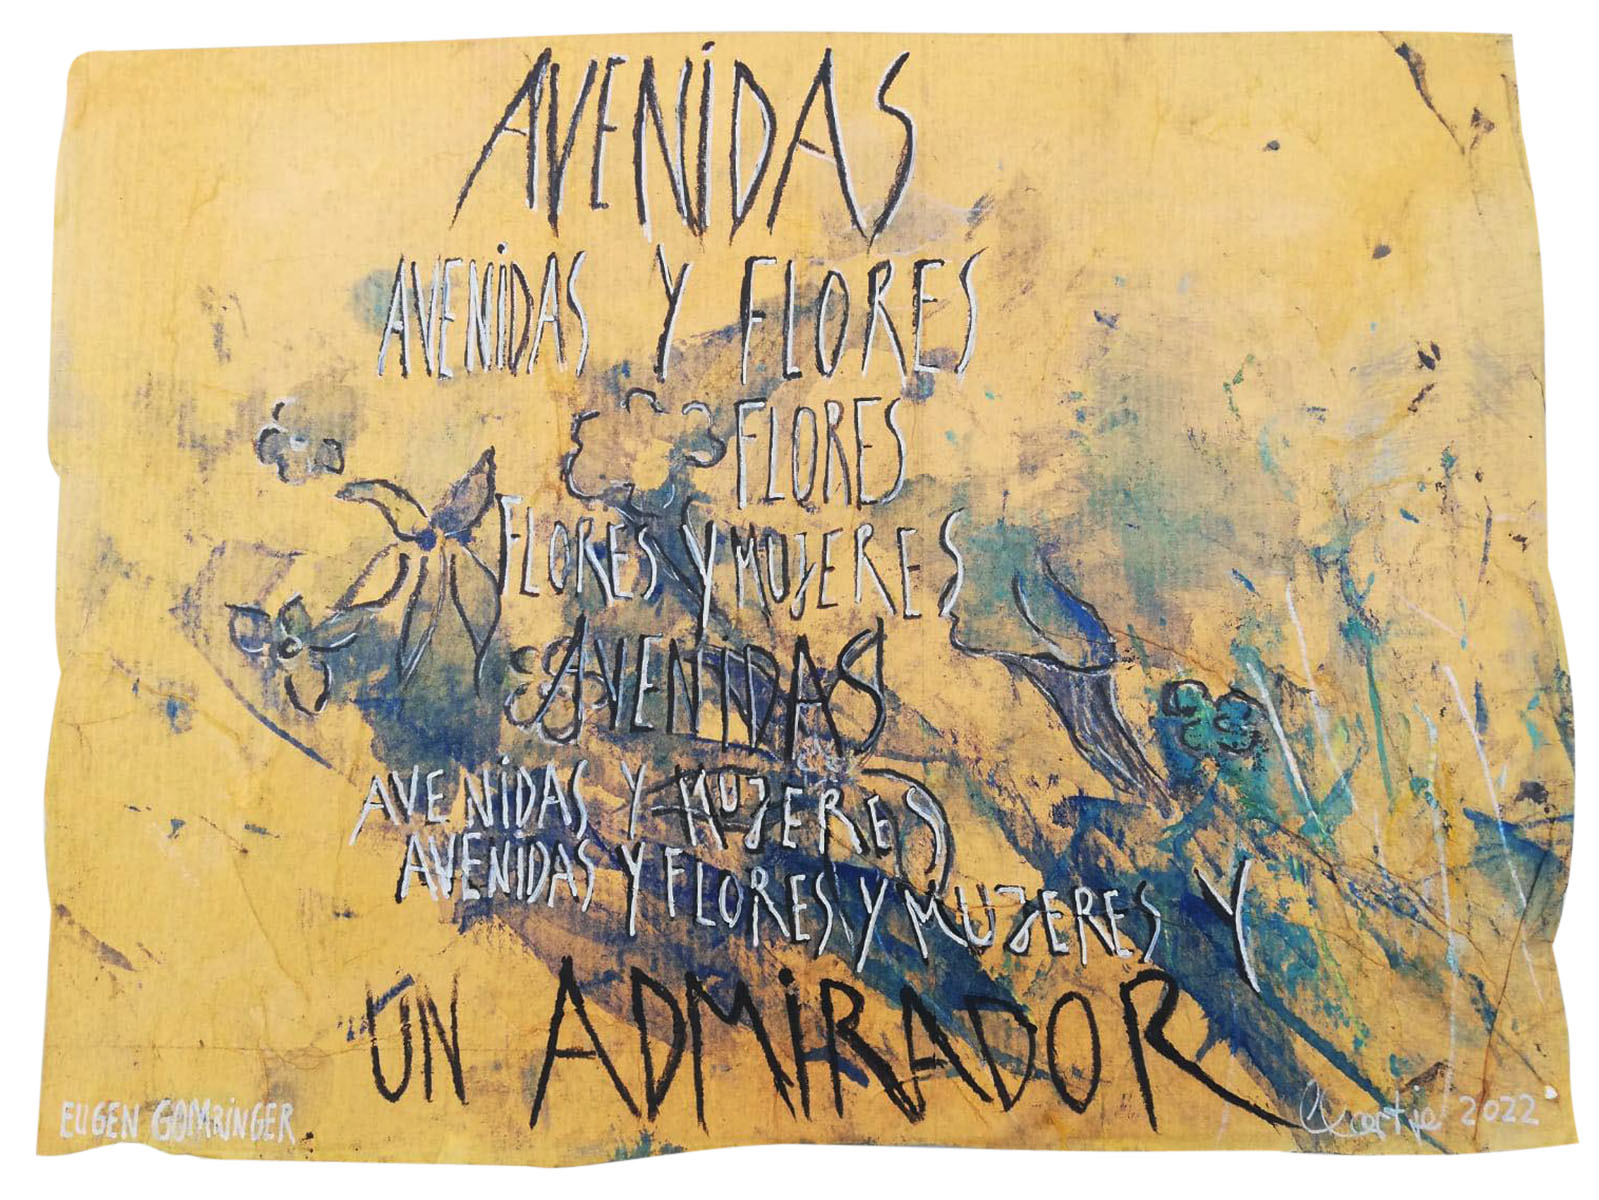 AVENIDAS
AVENIDAS Y FLORES
FLORES
FLORES Y MUJERES
AVENIDAS
AVENIDAS Y MUJERES
AVENIDAS Y FLORES Y MUJERES Y
UN ADMIRADOR
EUGEN GOMRINGER
2022